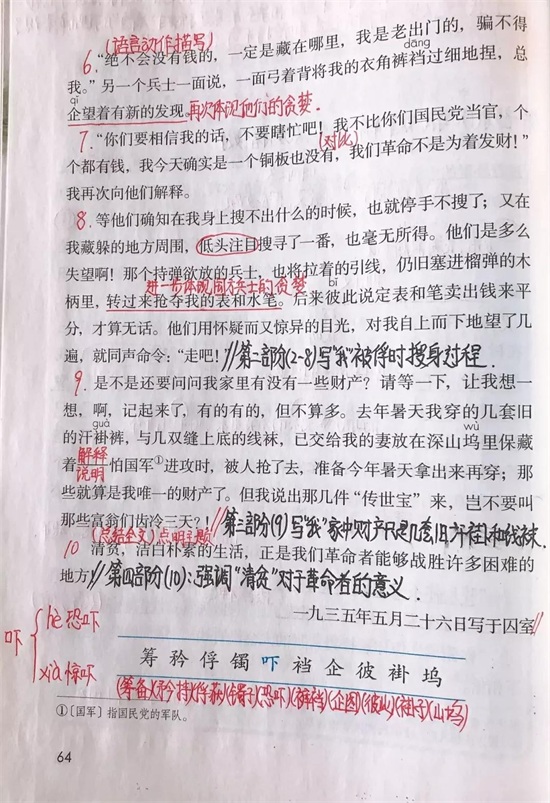 (语言动作描写)
6.“绝不会没有钱的，一定是藏在哪里，我是老出门的，骗不得
dāng
我。”另一个兵士一面说，一面弓着背将我的衣角裤裆过细地捏，总
qǐ
企望着有新的发现。再次体现他们的贪婪.
7.“你们要相信我的话，不要瞎忙吧！我不比你们国民党当官，个
(对比)
个都有钱，我今天确实是一个铜板也没有，我们革命不是为着发财！”
我再次向他们解释。
8.等他们确知在我身上搜不出什么的时候，也就停手不搜了；又在
我藏躲的地方周围，低头注目搜寻了一番，也毫无所得。他们是多么
失望啊！那个持弹欲放的兵士，也将拉着的引线，仍旧塞进榴弹的木
进一步体现国军兵士的贪婪
bǐ
柄里，转过来抢夺我的表和水笔。后来彼此说定表和笔卖出钱来平
分，才算无话。他们用怀疑而又惊异的目光，对我自上而下地望了几
遍，就同声命令：“走吧！//第二部分(2-8)写“我”被俘时搜身过程.
9.是不是还要问问我家里有没有一些财产？请等一下，让我想一
想，啊，记起来了，有的有的，但不算多。去年暑天我穿的几套旧
guà
wù
的汗褂裤，与几双缝上底的线袜，已交给我的妻放在深山坞里保藏
解释说明
着——怕国军①进攻时，被人抢了去，准备今年暑天拿出来再穿；那
些就算是我唯一的财产了。但我说出那几件“传世宝”来，岂不要叫
那些富翁们齿冷三天？！//第三部分(9)写“我”家中财产只是几套旧汗褂和线袜.
(总结全文)点明主题
10 清贫，洁白朴素的生活，正是我们革命者能够战胜许多困难的
地方！//第四部分(10)：强调“清贫”对于革命者的意义.
一九三五年五月二十六日写于囚室//
吓
hè恐吓
xià惊吓
筹 矜 俘 镯 吓 裆 企 彼 褂 坞
(筹备)(矜持)(俘获)(镯子)(恐吓)(裤裆)(企图)(彼此)(褂子)(山坞)
①〔国军〕指国民党的军队。
64